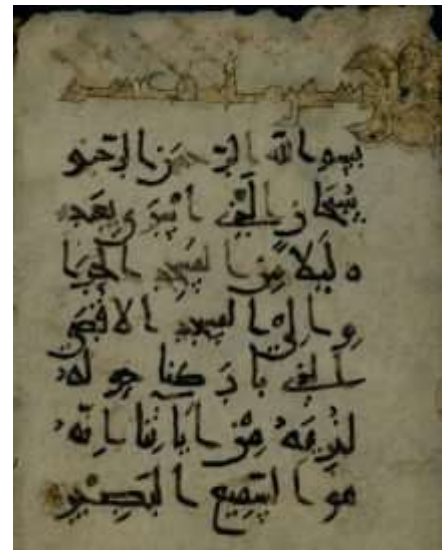 بسم الله الرحمن الرحيم
سبحان الذي أسرى بعبد
ه ليلا من المسجد الحرا
م إلى المسجد الأقصى
الذي باركنا حوله
لنريه من آياتنا إنه
هو السميع البصير